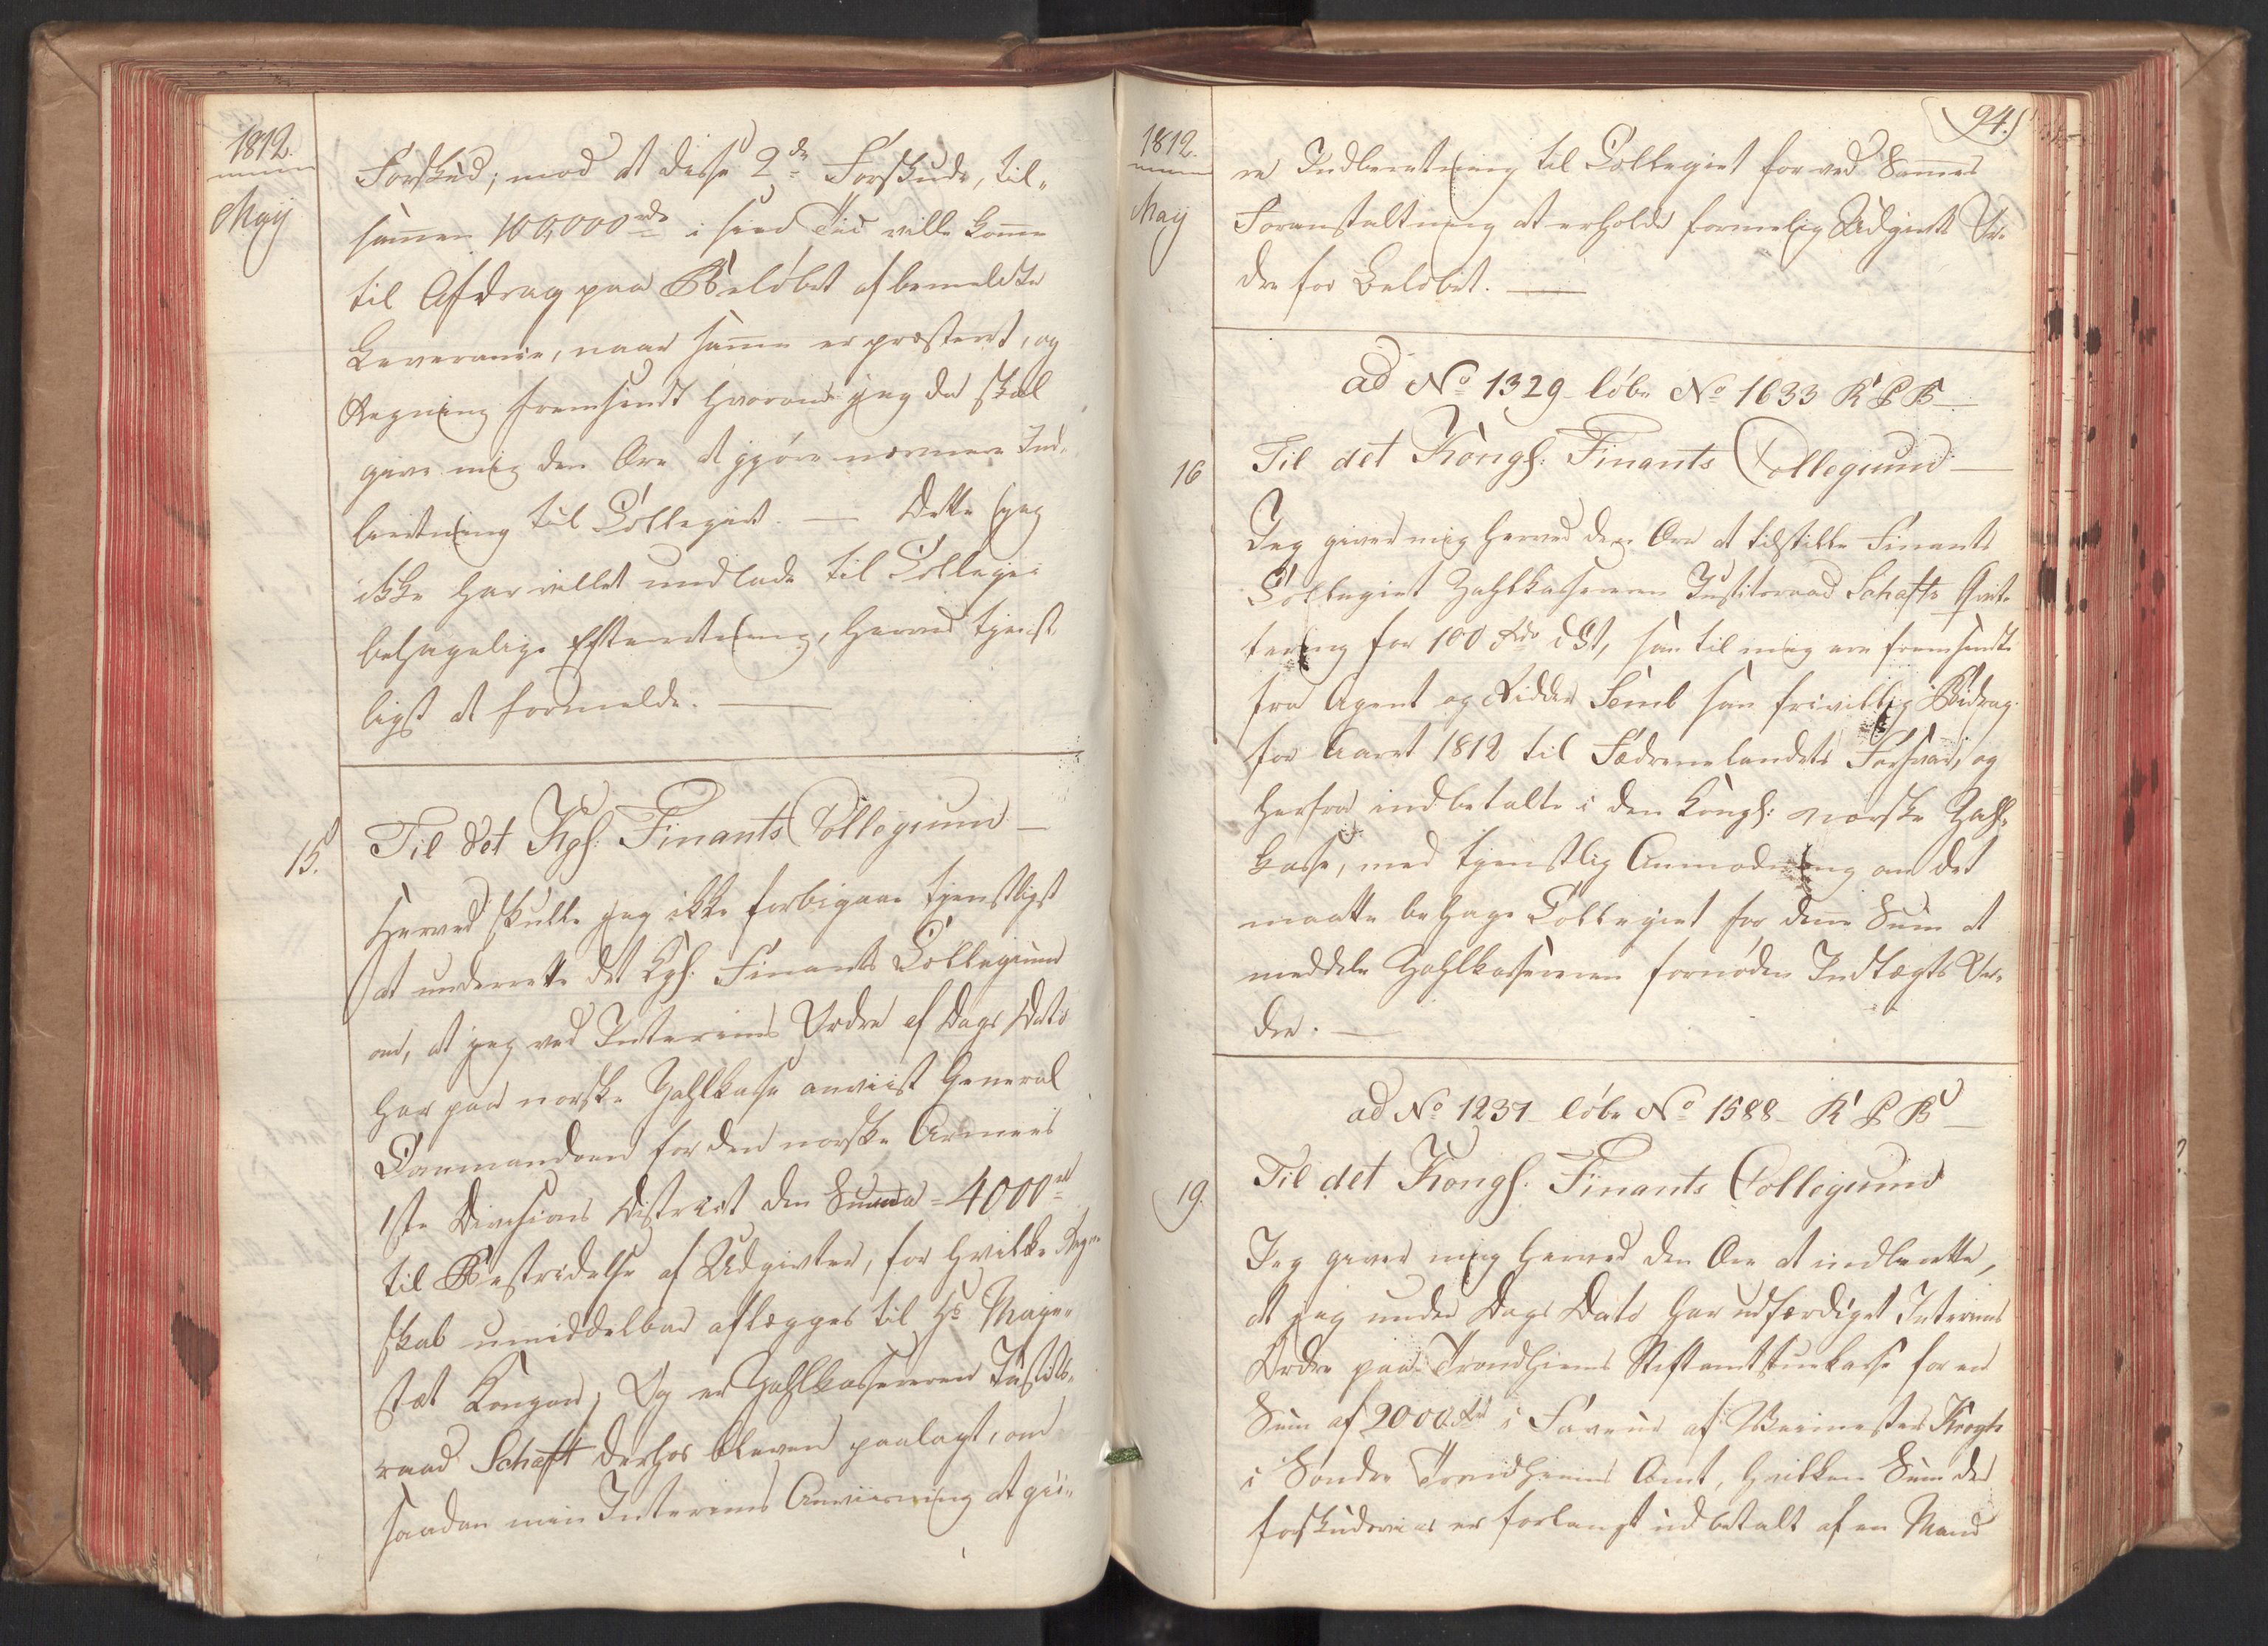 1812.
Maij
Forskud; mod at disse 2de Forskude, til-
sam̄en 100,000 rdr i sin Tid ville kom̄e
til Afdrag paa Beløbet af bemeldte
Leverance, naar sam̄e er præsteret, og
Regning fremsendt hvorom jeg da skal
give mig den Ære at gjøre nærmere Ind-
beretning til Collegiet. — Dette jeg
ikke har villet undlade til Collegii
behagelige Efterretning, herved tjenst-
ligst at formelde. —
15.
Til det Kgl: Finants Collegium —
Herved skulle jeg ikke forbigaae tjenstligst
at underrette det Kgl: Finants Collegium
om, at jeg ved Interims Ordre af Dags Dato
har paa norske Zahlkasse anviist General
Commandoen for den norske Armees
1ste Divisions District den Summa = 4000 rd
til Bestridelse af Udgivter, for hvilke Regn-
skab umiddelbar aflægges til Hs Maje-
stæt Kongen; Og er Zahlkassereren Justits-
raad Schaft derhos bleven paalagt, om
saadan min Interims Anviisning at giø-
94.
1812.
Maij
re Indberetning til Collegiet for ved Sam̄es
Foranstaltning at erholde formelig Udgivts Or-
dre for Beløbet. —
ad No 1329 løbe No 1633 K P B —
16
Til det Kongl: Finants Collegium —
Jeg giver mig herved den Ære at tilstille Finants
Collegiet Zahlkassereren Justitsraad Schafts Qvit-
tering for 100 Rdr DCt, som til mig ere fremsendte
fra Agent og Ridder Semb som frivillig Bidrag
for Aaret 1812 til Fædrenelandets Forsvar, og
herfra indbetalte i den Kongl: norske Zahl-
kasse, med tjenstlig Anmodning om det
maatte behage Collegiet for den̄e Sum at
meddele Zahlkassereren fornøden Indtægts Or-
dre. —
ad No 1237 løbe No 1588 K P B —
19.
Til det Kongl: Finants Collegium
Jeg giver mig herved den Ære at indberette,
at jeg under Dags Dato har udfærdiget Interims
Ordre paa Trondhiems Stiftamtstuekasse for en
Sum af 2000 Rd i Faveur af Veimester Krogh
i Søndre Trondhiems Amt, hvilken Sum der
forskudsviis er forlangt udbetalt af en Mand